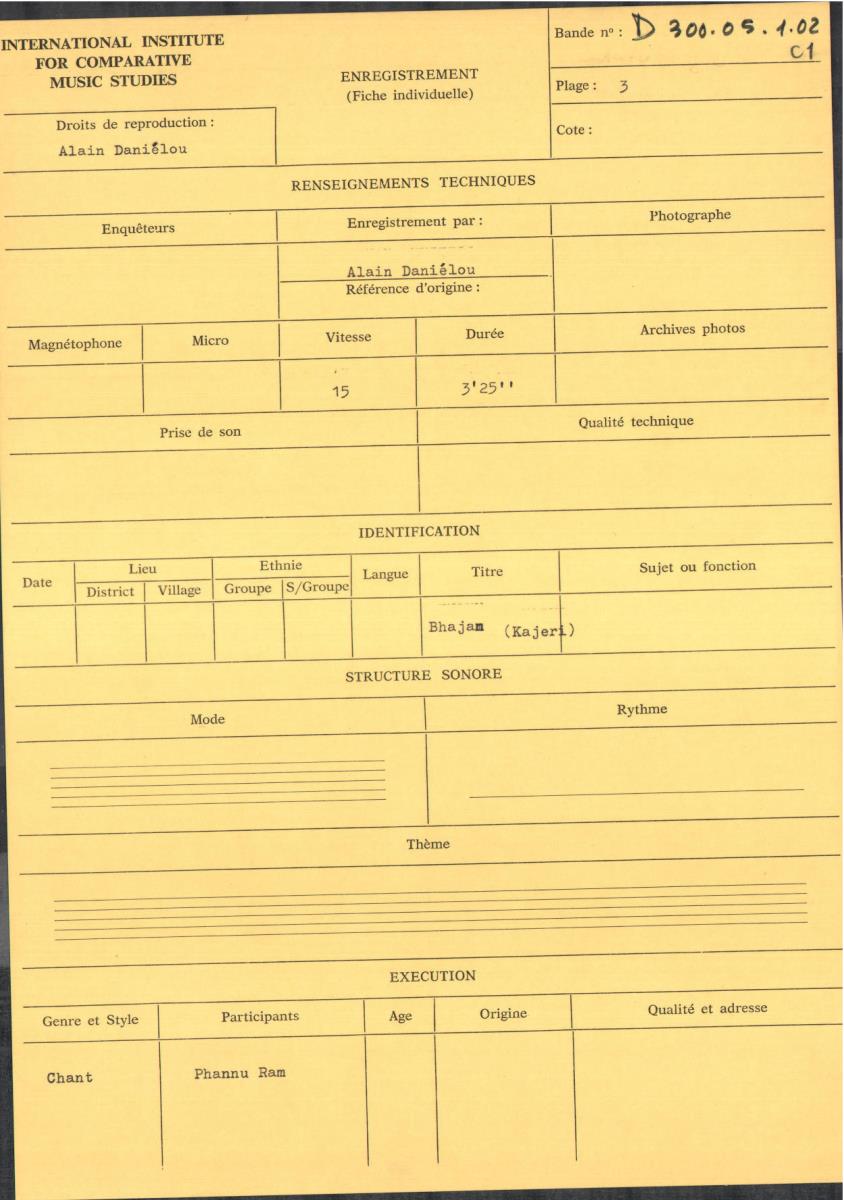 INTERNATIONAL INSTITUTE
FOR COMPARATIVE
MUSIC STUDIES
ENREGISTREMENT
(Fiche individuelle)
Bande nº : D 300.05.1.02
C1
Plage : 3
Cote :
Droits de reproduction :
Alain Daniélou
RENSEIGNEMENTS TECHNIQUES
Enquêteurs
Enregistrement par :
Photographe
Alain Daniélou
Référence d'origine :
Magnétophone
Micro
Vitesse
Durée
Archives photos
15
3'25''
Prise de son
Qualité technique
IDENTIFICATION
Date
Lieu
Ethnie
Langue
Titre
Sujet ou fonction
District
Village
Groupe
S/Groupe
Bhajan (Kajeri)
STRUCTURE SONORE
Mode
Rythme
Thème
EXECUTION
Genre et Style
Participants
Age
Origine
Qualité et adresse
Chant
Phannu Ram